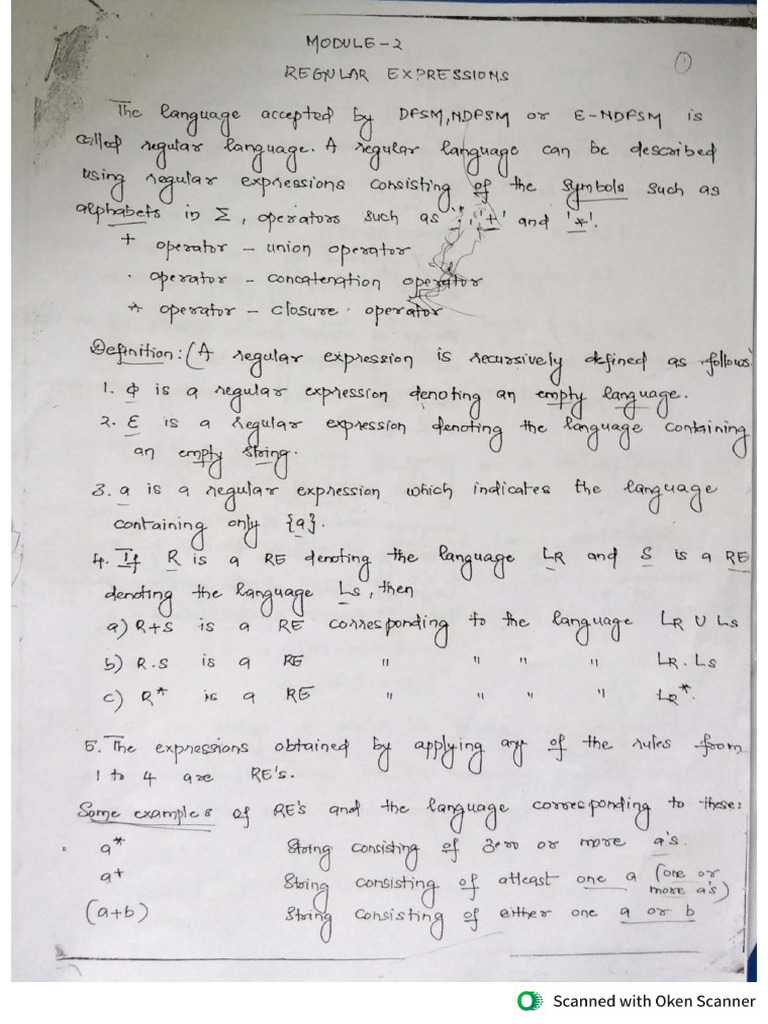 MODULE-2
①
REGULAR EXPRESSIONS
The language accepted by DFSM, NDFSM or E-NDFSM is
called regular language. A regular language can be described
using regular expressions consisting of the symbols such as
alphabets in Σ, operators such as '.', '+' and '*'.
+ operator - union operator
. operator - concatenation operator
* operator - closure operator
Definition: (A regular expression is recursively defined as follows:
1. Φ is a regular expression denoting an empty language.
2. Ɛ is a regular expression denoting the language containing
an empty string.
3. a is a regular expression which indicates the language
containing only {a}.
4. If R is a RE denoting the language LR and S is a RE
denoting the language Ls, then
a) R+S is a RE corresponding to the language LR U Ls
b) R.S is a RE " " " " LR.Ls
c) R* is a RE " " " " LR*.
5. The expressions obtained by applying any of the rules from
1 to 4 are RE's.
Some examples of RE's and the language corresponding to these:
a* String consisting of zero or more a's.
a+ String consisting of atleast one a (one or
more a's)
(a+b) String consisting of either one a or b
Scanned with Oken Scanner